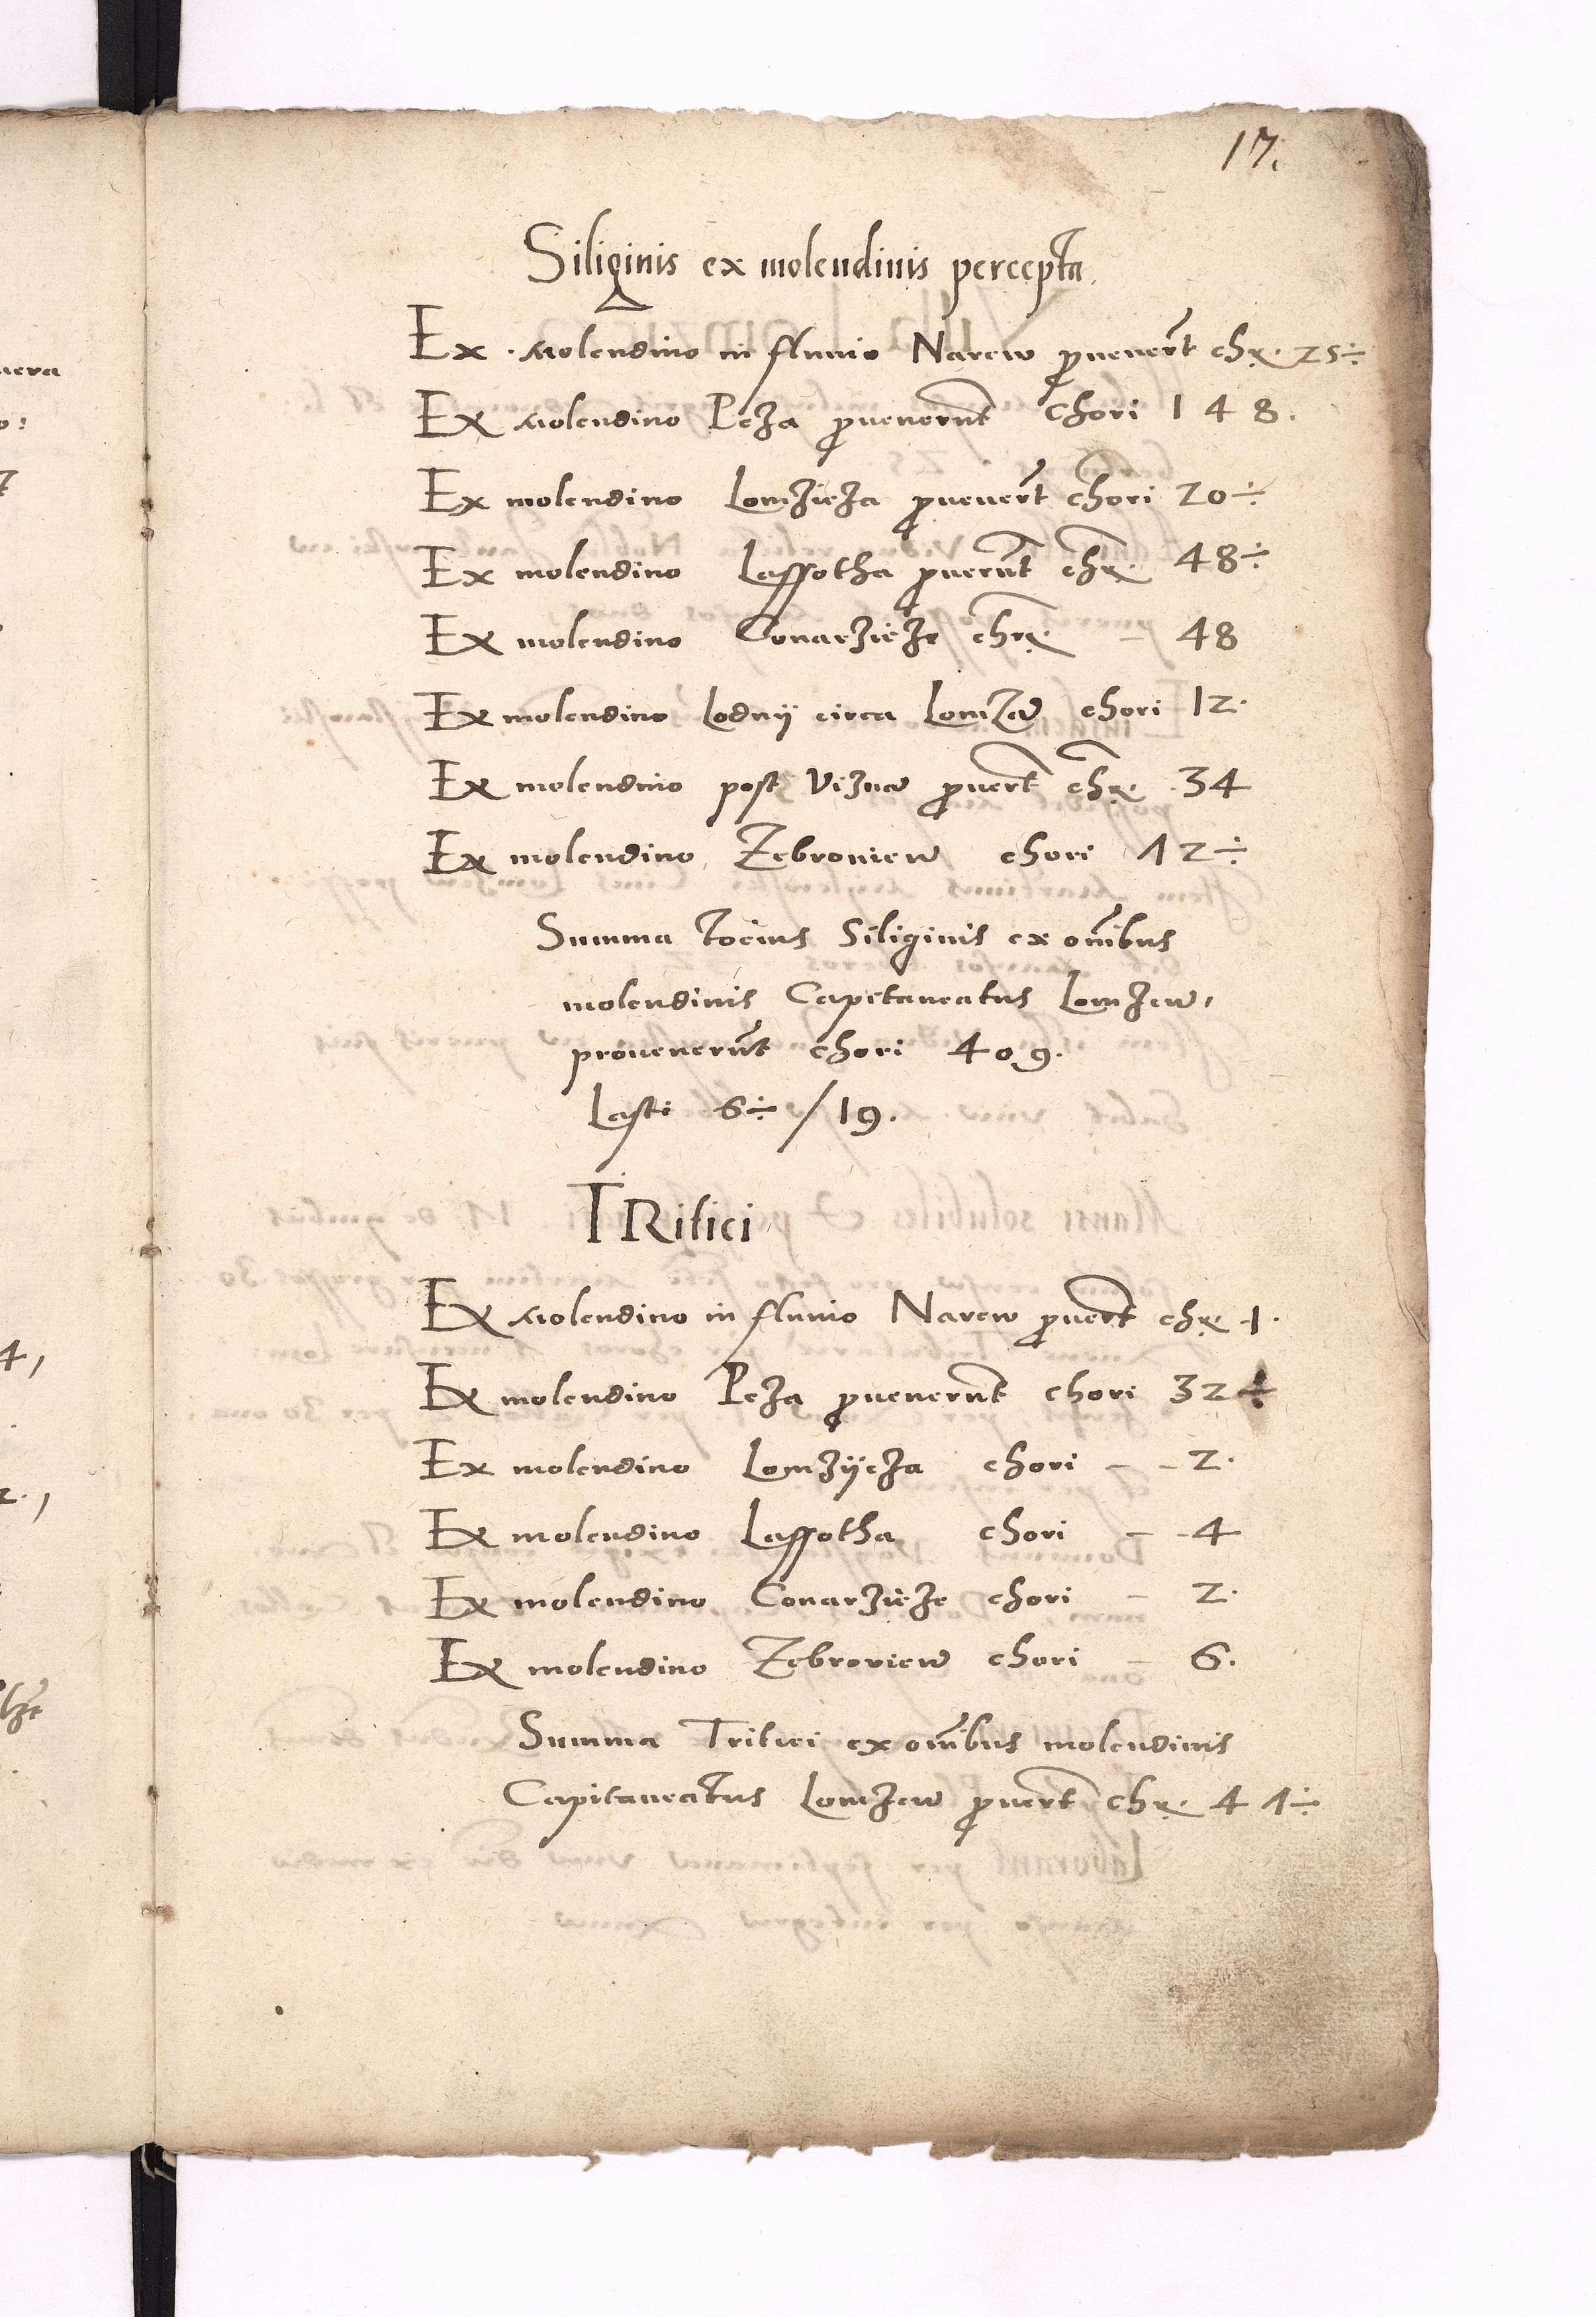 17.
Siliginis ex molendinis percepta
Ex molendino in fluuio Narew ꝓuenert̄ chꝝ 25÷
Ex molendino Peza ꝓuenerūt Chori 1 4 8.
Ex molendino Lomzieza ꝓuenert̄ chori 20÷
Ex molendino Lassotha ꝓuerūt chꝝ 48÷
Ex molendino Conarzieze chꝝ – 48
Ex molendino Lodnij circa Lomza chori 12.
Ex molendino post Vizna ꝓuert̄ chꝝ 34
Ex molendino Zebroniew chori 72÷
Summa tocius Siliginis ex om̄ibus
molendinis Capitaneatus Lomzen,
prouenerūt chori 409.
Lasti 6÷ / 19.
TRitici
Ex molendino in fluuio Narew ꝓuert̄ chꝝ 1.
Ex molendino Peza ꝓuenerūt chori 32÷
Ex molendino Lomzijeza chori – – 2.
Ex molendino Lassotha chori – – 4
Ex molendino Conarzieze chori – 2.
Ex molendino Zebroniew chori – 6.
Summa Tritici ex om̄ibus molendinis
Capitaneatus Lomzen ꝓuert̄ chꝝ 4 7÷